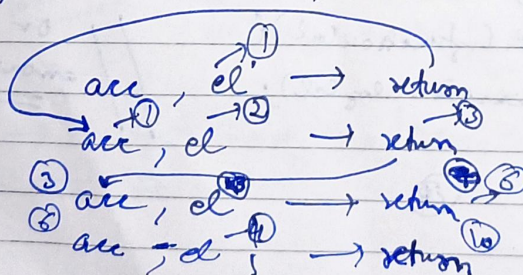 ①
acc , el → return
① ② ③
acc , el → return
③ acc , el → return ⑥
⑥ acc , el ④ → return ⑩